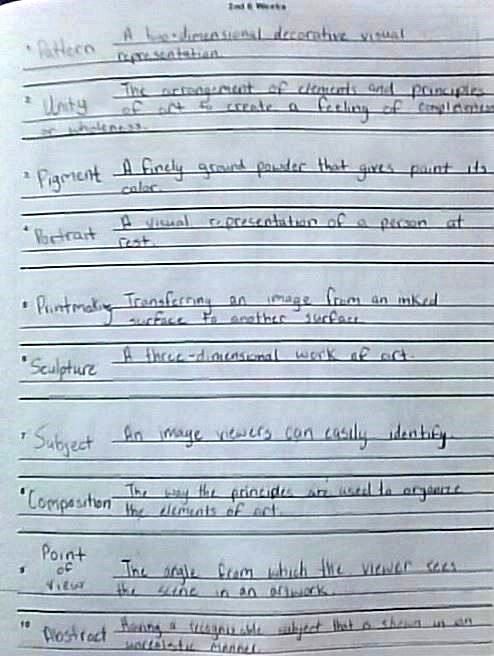 2nd 6 Weeks
1 Pattern A two-dimensional decorative visual
representation.
2 Unity The arrangement of elements and principles
of art to create a feeling of completeness
or wholeness.
3 Pigment A finely ground powder that gives paint its
color.
4 Portrait A visual representation of a person at
rest.
5 Printmaking Transferring an image from an inked
surface to another surface
6 Sculpture A three-dimensional work of art.
7 Subject An image viewers can easily identify.
8 Composition The way the principles are used to organize
the elements of art.
Point
9 of The angle from which the viewer sees
View the scene in an artwork.
10 Abstract Having a recognizable subject that is shown in an
unrealistic manner.